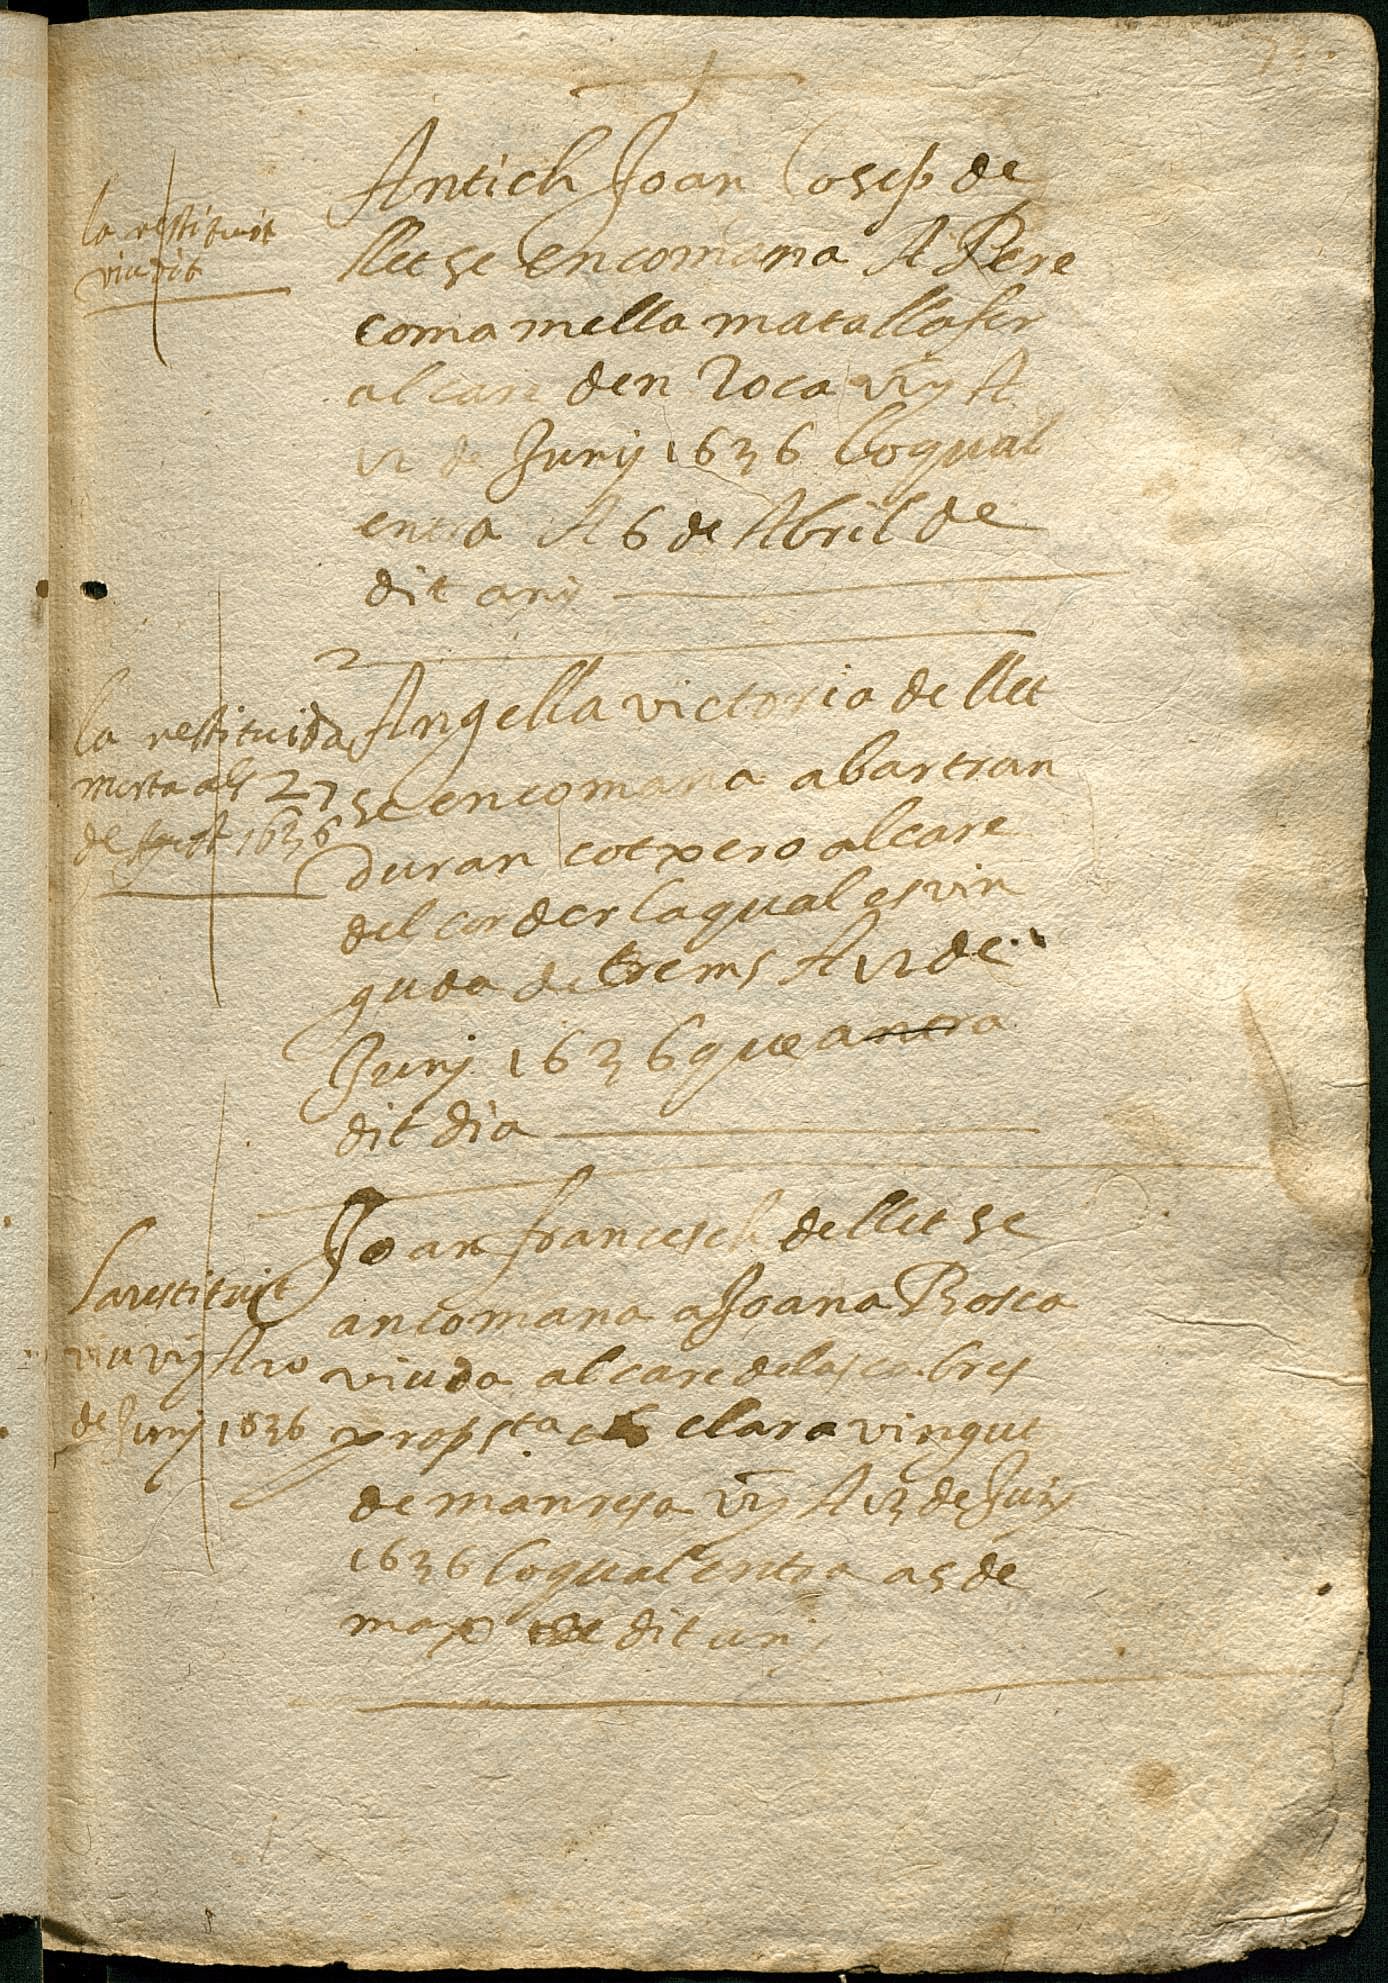 la restituit
viu dit
Antich Joan Josep de
llet se encomana A Pere
comamella matallafer
al care den Roca vuy A
12 de Juny 1636 loqual
entra A 6 de Abril de
dit any
la restituida
morta als 27
de Agost 1636
Angella victoria de llet
se encomana a bartran
Duran cotxero al care
del corder laqual es vin
guda de trems A 12 de
Juny 1636 que antra
dit dia
la restituit
viu vuy A 20
de Juny 1636
Joan francesch de llet se
ancomana a Joana Rosca
viuda al care de las
props ta clara vingut
de manresa vuy A 13 de Juny
1636 loqual entra a 5 de
maig de dit any